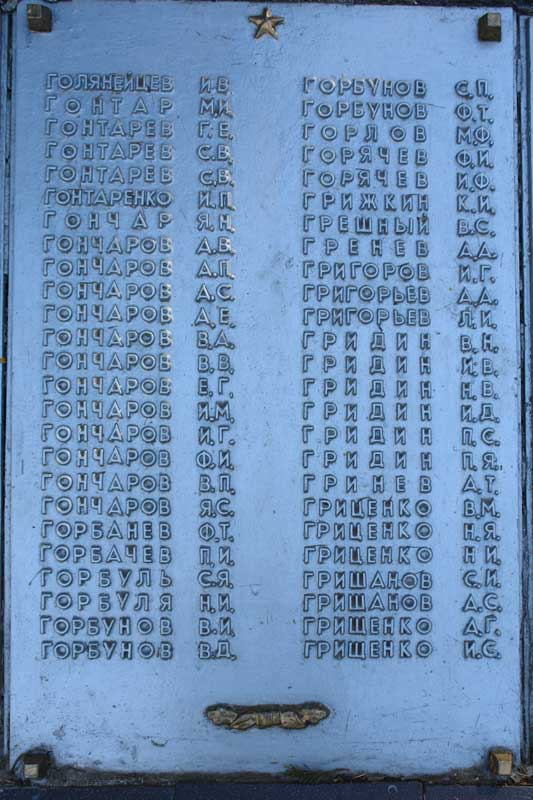 ГОЛЯНЕЙЦЕВ И.В.
ГОНТАР М.И.
ГОНТАРЕВ Г.Е.
ГОНТАРЕВ С.В.
ГОНТАРЕВ С.В.
ГОНТАРЕНКО И.П.
ГОНЧАР Я.Н.
ГОНЧАРОВ А.В.
ГОНЧАРОВ А.П.
ГОНЧАРОВ А.С.
ГОНЧАРОВ Д.Е.
ГОНЧАРОВ В.А.
ГОНЧАРОВ В.В.
ГОНЧАРОВ Е.Г.
ГОНЧАРОВ И.М.
ГОНЧАРОВ И.Г.
ГОНЧАРОВ Ф.И.
ГОНЧАРОВ В.П.
ГОНЧАРОВ Я.С.
ГОРБАНЕВ Ф.Т.
ГОРБАЧЕВ П.И.
ГОРБУЛЬ С.Я.
ГОРБУЛЯ Н.И.
ГОРБУНОВ В.И.
ГОРБУНОВ В.Д.
ГОРБУНОВ С.П.
ГОРБУНОВ Ф.Т.
ГОРЛОВ М.Ф.
ГОРЯЧЕВ Ф.И.
ГОРЯЧЕВ И.Ф.
ГРИЖКИН К.И.
ГРЕШНЫЙ В.С.
ГРЕНЕВ А.А.
ГРИГОРОВ И.Г.
ГРИГОРЬЕВ А.А.
ГРИГОРЬЕВ Л.И.
ГРИДИН В.Н.
ГРИДИН И.В.
ГРИДИН Н.В.
ГРИДИН И.Д.
ГРИДИН П.С.
ГРИДИН П.Я.
ГРИНЕВ А.Т.
ГРИЦЕНКО В.М.
ГРИЦЕНКО Н.Я.
ГРИЦЕНКО Н.И.
ГРИШАНОВ С.И.
ГРИШАНОВ А.С.
ГРИЩЕНКО А.Г.
ГРИЩЕНКО И.С.